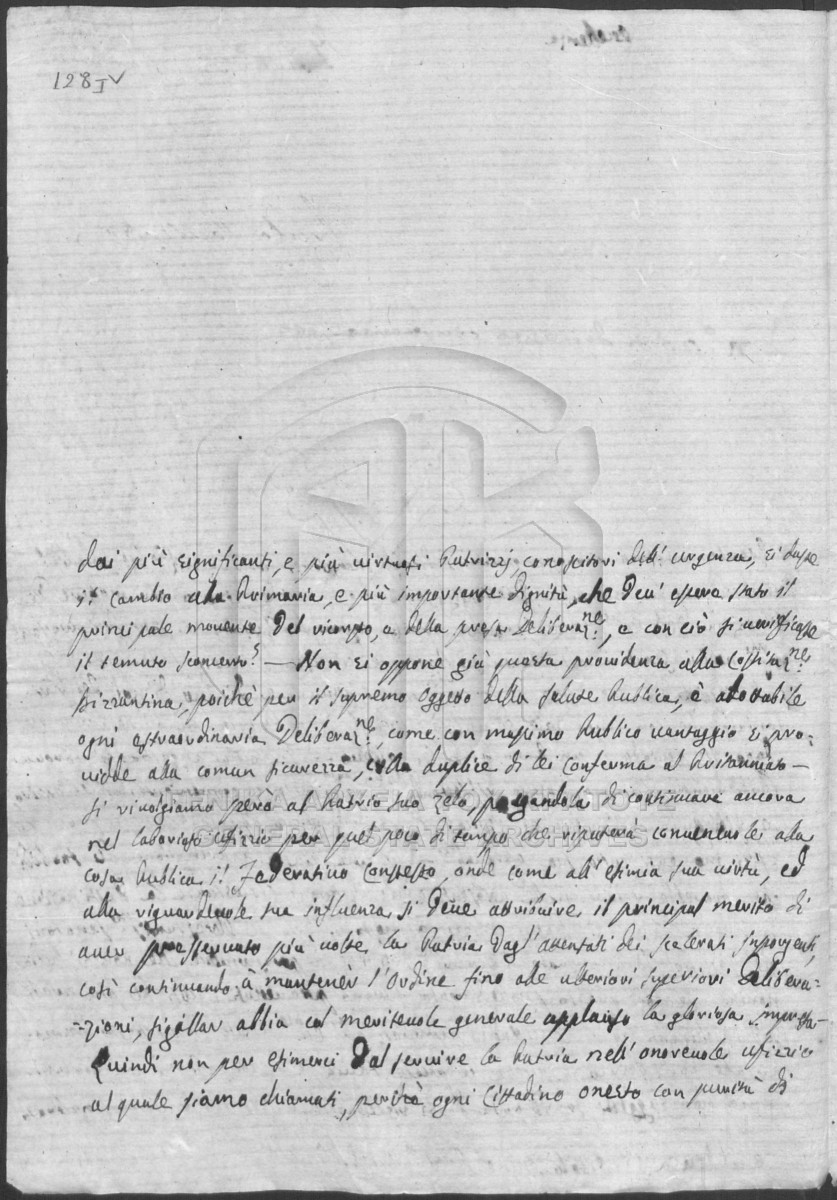 128 IV
dai più significanti, e più virtuosi Patrizzj, conoscitori dell' urgenza, si dasse
il cambio alla Primaria, e più importante dignità, che deu' essere stato il
principale movente del vicorpto, e della presa Deliberaz.ne, e con ciò si verificasse
il temuto sconcerto — Non si oppone già questa providenza alla Costituz.ne
Bizzantina, poichè per il supremo oggetto della salute Publica, è adottabile
ogni estraordinaria Deliberaz.ne, come con massimo Publico vantaggio si pro-
vidde alla comun sicurezza, colla duplice di lei conferma al Britanniato —
si rivolgiamo però al Patrio suo zelo, pregandola di continuare ancora
nel laborioso ufizzio per quel poco di tempo che riputerà convenevole alla
cosa Publica il Federativo Consesso, onde come all' esimia sua virtù, ed
alla riguardevole sua influenza si deve attribuire il principal merito di
aver presservato più volte la Patria dagl' attentati dei scelerati insorgenti,
così continuando à mantener l'Ordine fino alle ulteriori superiori Delibera-
-zioni, sigillar abbia col meritevole generale applauso la gloriosa impresa —
Quindi non per esimerci dal servire la Patria nell' onorevole ufizzio
al quale siamo chiamati, perchè ogni Cittadino onesto con purità di